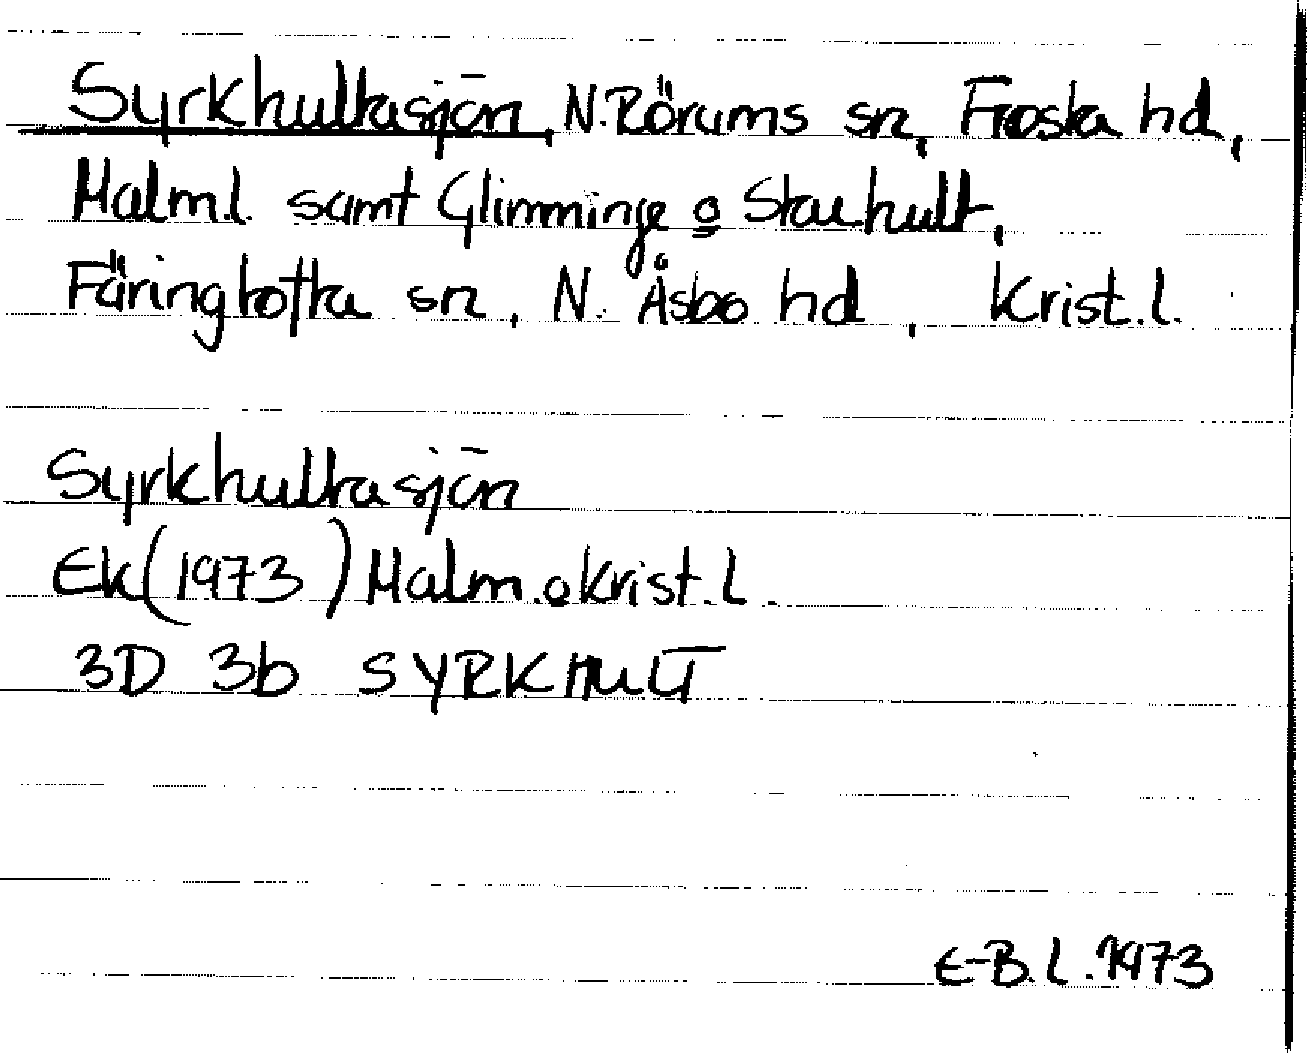 Syrkhultasjön, N. Rörums sn, Frosta hd,
Malm.l. samt Glimminge o Starhult,
Färingtofta sn, N. Åsbo hd, Krist.l.
Syrkhultasjön
Ek (1973) Malm. o Krist. L.
3D 3b SYRKHULT
E-B. L. 1973